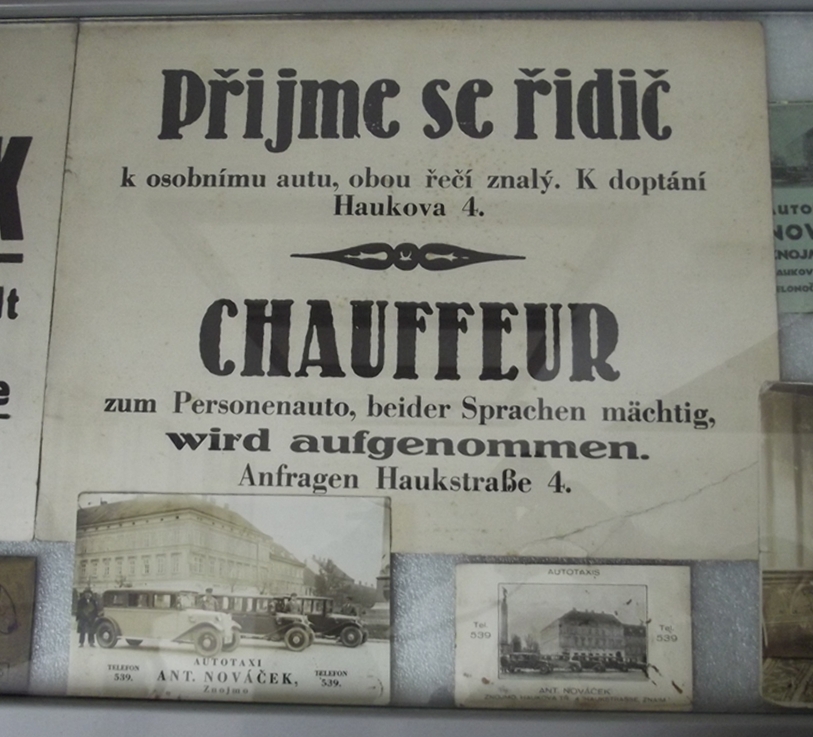 Přijme se řidič
k osobnímu autu, obou řečí znalý. K doptání
Haukova 4.
CHAUFFEUR
zum Personenauto, beider Sprachen mächtig,
wird aufgenommen.
Anfragen Haukstraße 4.
AUTOTAXI
TELEFON
539.
ANT. NOVÁČEK,
TELEFON
539.
Znojmo
AUTOTAXIS
Tel.
539
Tel.
539
ANT. NOVÁČEK